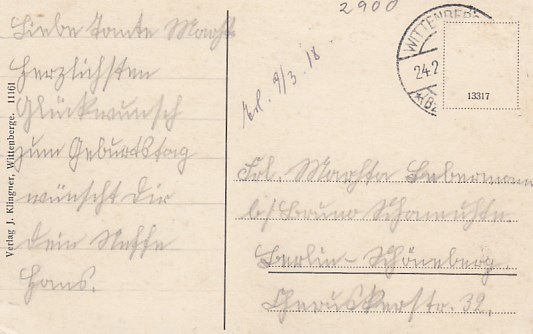 2900
Liebe Tante Martha
Herzlichsten
Glückwunsch
zum Geburtstag
wünscht Dir
Dein Neffe
Hans.
Verlag J. Klingner, Wittenberge. 11161
9/3. 18.
WITTENBERGE
24.2
13317
Frl. Martha Liebermann
b/ Bruno
Berlin-Schöneberg
Cheruskerstr. 32,